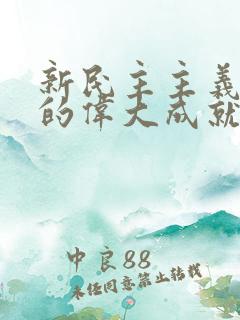 新民主主義
的偉大成就
中良88
未经同意禁止转载